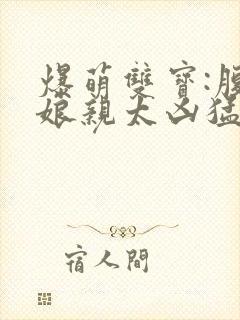 爆萌雙寶:腹
娘親太凶猛
宿人間